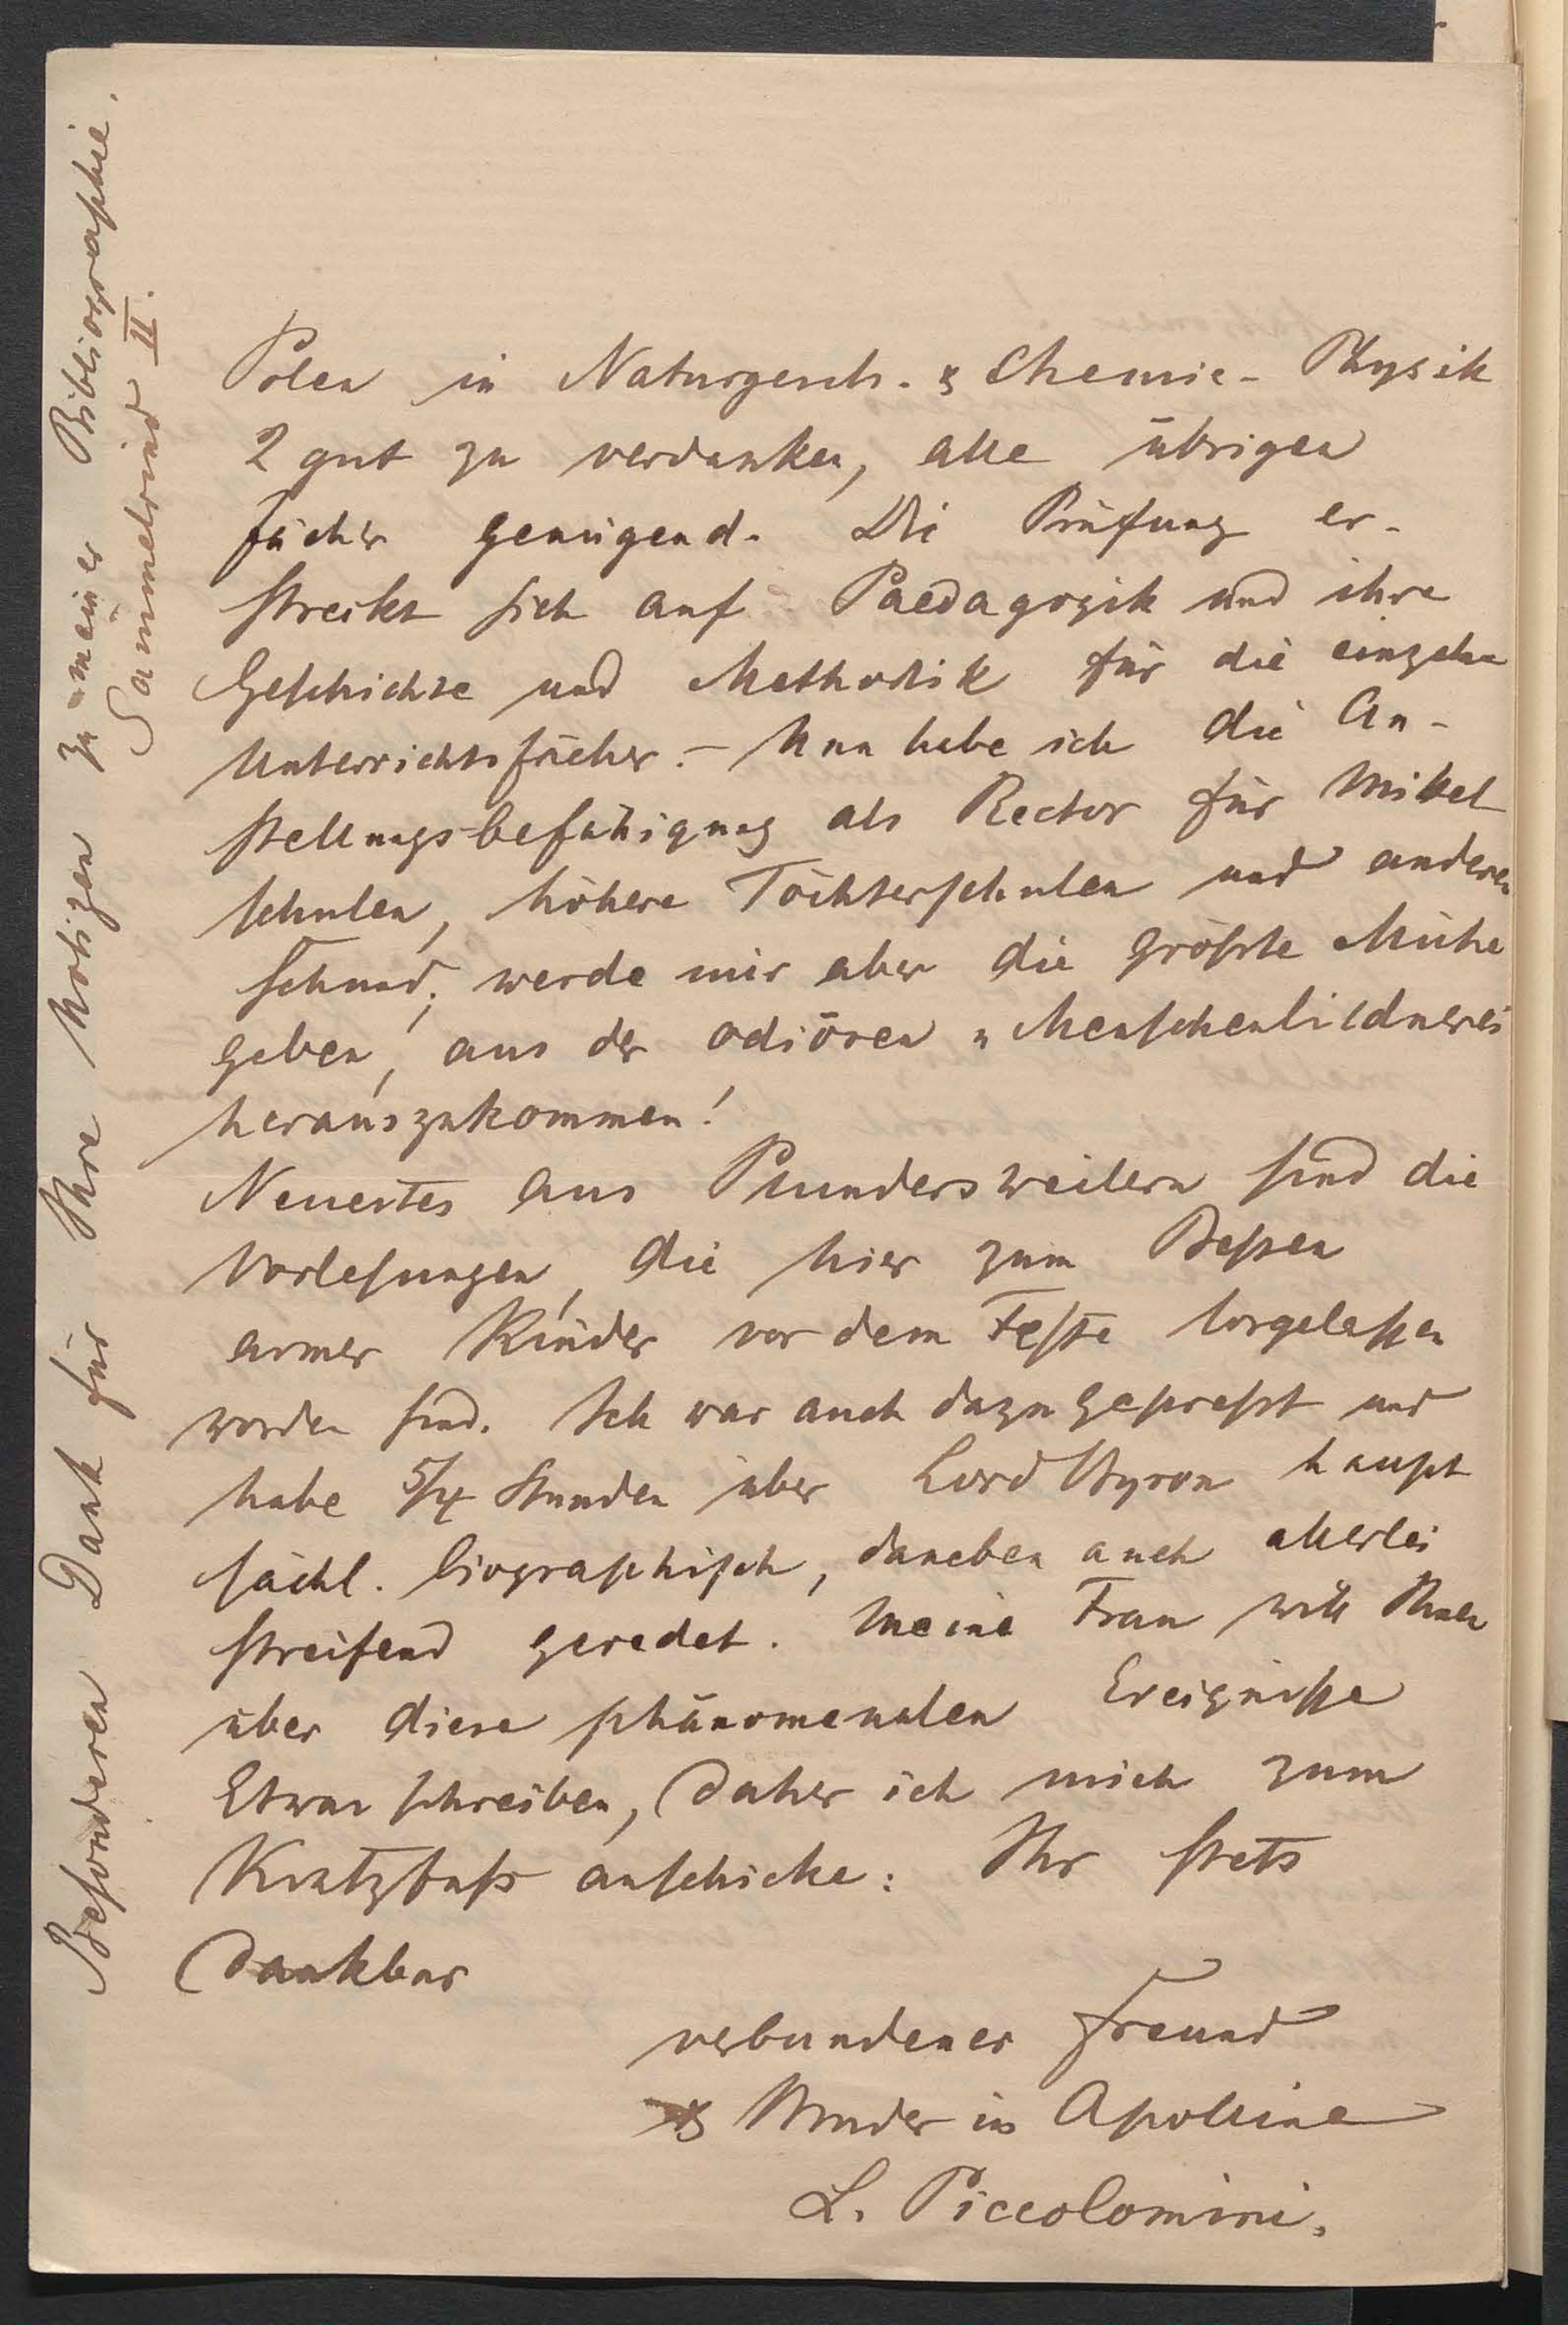 Polen in Naturgesch. & Chemie - Physik
2 gut zu verdanken, alle übrigen
Fächer genügend. Die Prüfung er-
streckt sich auf Paedagogik und ihre
Geschichte und Methodik für die einzelne
Unterrichtsfächer. - Nun habe ich die An-
stellungsbefähigung als Rector für Mittel
schulen, höhere Töchterschulen und anderen
Schund, werde mir aber die größte Mühe
geben, aus der odiösen „Menschenbildnerei
herauszukommen!
Neuestes aus Plundersweilern sind die
Vorlesungen, die hier zum Besten
armer Kinder vor dem Feste losgelassen
worden sind. Ich war auch dazu gepreßt und
habe 5/4 Stunden über Lord Byron haupt
sächl. biographisch, daneben auch allerlei
streifend geredet. Meine Frau will Ihnen
über diese phänomenalen Ereigniße
Etwas schreiben, daher ich mich zum
Kratzfuß anschicke: Ihr stets
dankbar
verbundener Freund
& Bruder in Apolline
L. Piccolomini.
Besonderen Dank für Ihre Notizen zu meiner Bibliographie.
Sammelrind II.